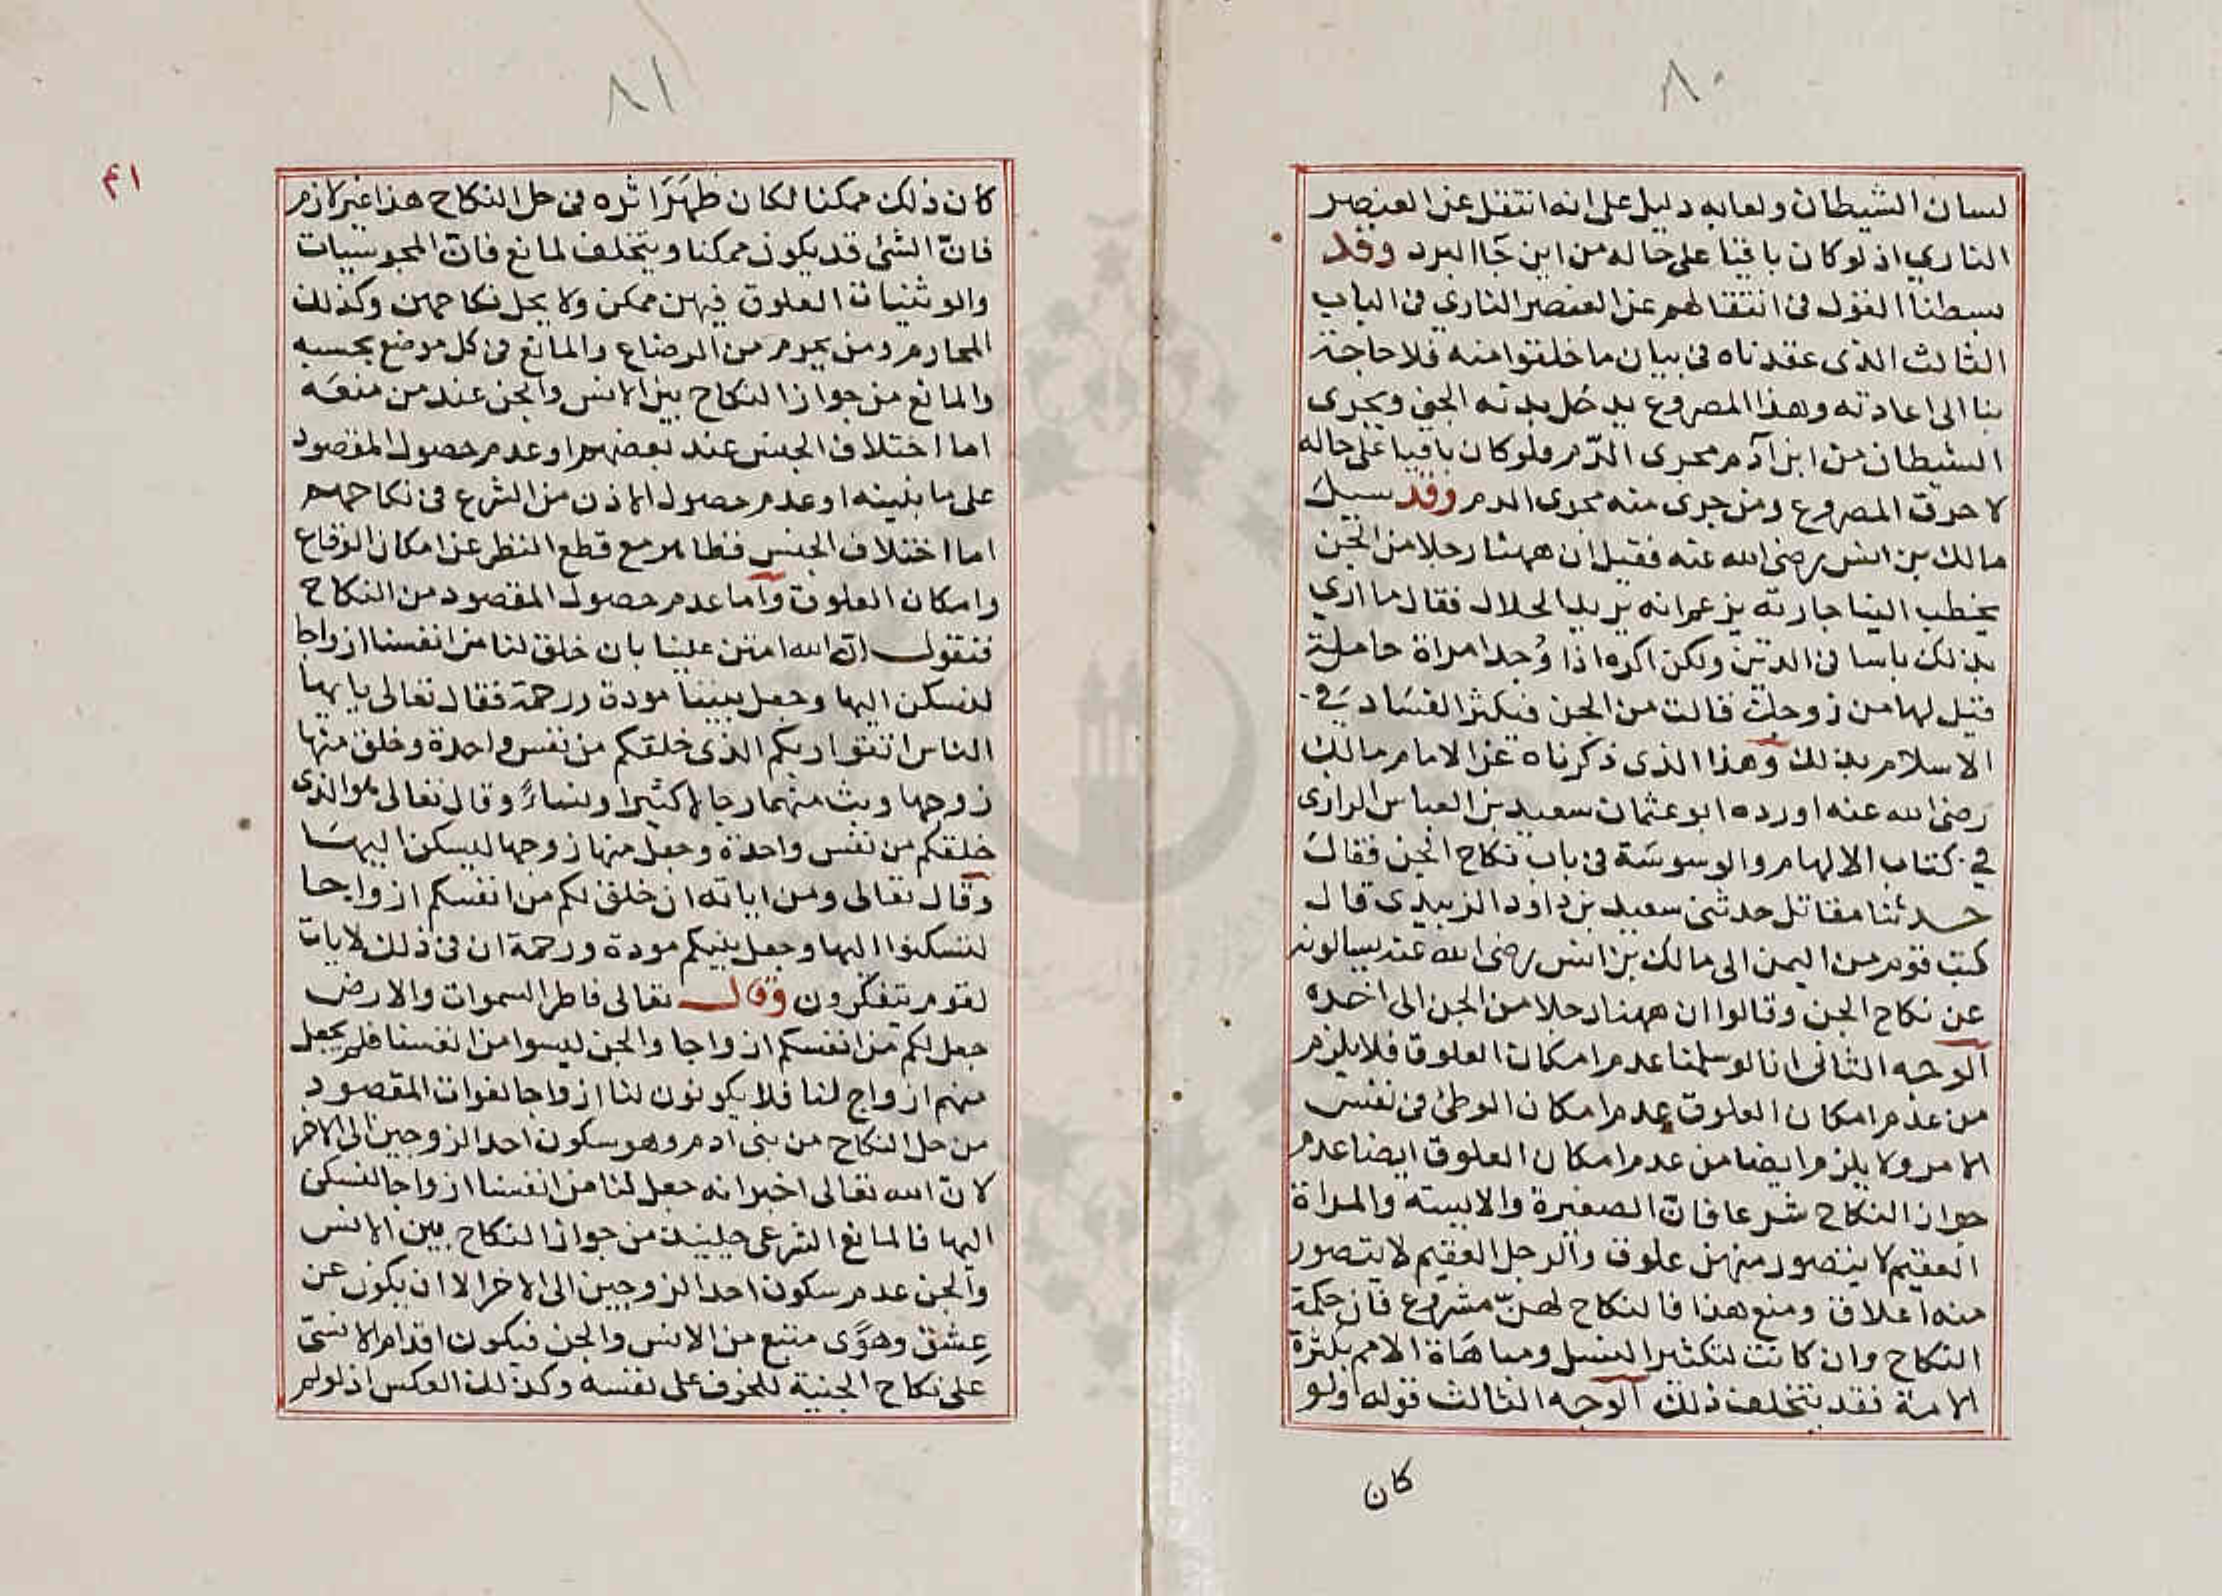 ٨٠
لسان الشيطان ولعابه دليل على انه انتقل عن العنصر
الناري اذ لو كان باقيا على حاله من اين جاالبرد وقد
بسطنا القول فى انتقالهم عن العنصر الناري فى الباب
الثالث الذى عقدناه فى بيان ما خلقوا منه فلا حاجة
بنا الى اعادته وهذا المصروع يدخل بدنه الجني ويجرى
الشيطان من ابن آدم مجرى الدّم فلو كان باقيا على حاله
لاحرق المصروع ومن جرى منه مجرى الدم وقد سيل
مالك بن انس رضى الله عنه فقيل ان ههنا رجلا من الجن
يخطب الينا جارية يزعم انه يريد الحلال فقال ما اري
بذلك باسا فى الدين ولكن اكره اذا وُجد امراة حاملة
قيل لها من زوجك قالت من الجن فيكثر الفسَاد في
الاسلام بذلك وهذا الذى ذكرناه عن الامام مالك
رَضى الله عنه اورده ابو عثمان سعيد بن العباس الرازى
في كتاب الالهام والوسوسَة فى باب نكاح الجن فقال
حدثنا مقاتل حدثنى سعيد بن داود الزبيدى قال
كتب قوم من اليمن الى مالك بن انس رضى الله عنه يسالونه
عن نكاح الجن وقالوا ان ههنا رجلا من الجن الى اخره
آلوجه الثانى انا لو سلمنا عدم امكان العلوق فلا يلزم
من عدم امكان العلوق عدم امكان الوطئ فى نفس
الامر ولا يلزم ايضا من عدم امكان العلوق ايضا عدم
جواز النكاح شرعا فانّ الصغيرة والايسته والمراة
العقيم لا يتصور منهن علوق والرجل العقيم لا يتصور
منه اعلاق ومنع هذا فالنكاح لهنّ مشروع فان حكمة
النكاح وان كانت لتكثير النسل ومباهَاة الامم بكثرة
الامة فقد يتخلف ذلك آلوجه الثالث قوله ولو
كان
٨١
٤١
كان ذلك ممكنا لكان ظهَرَ اثره فى حل النكاح هذا غير لازم
فانّ الشئ قد يكون ممكنا ويتخلف لمانع فانّ المجوسيات
والوثنيات العلوق فيهن ممكن ولا يحل نكاحهن وكذلك
المحارم ومن يحرم من الرضاع والمانع فى كل موضع بحسبه
والمانع من جواز النكاح بين الانس والجن عند من منعَه
اما اختلاف الجنس عند بعضهم او عدم حصول المقصود
على ما نبينه او عدم حصول الاذن من الشرع فى نكاحهم
اما اختلاف الجنس فظاهر مع قطع النظر عن امكان الوقاع
وامكان العلوق وآما عدم حصول المقصود من النكاح
فنقول انّ الله امتن علينا بان خلق لنا من انفسنا ازواجا
لنسكن اليها وجعل بيننا مودة ورحمة فقال تعالى يا يها
الناس اتقوا ربكم الذى خلقكم من نفس واحدة وخلق منها
زوجها وبث منهما رجالا كثيرا ونساءً وقال تعالى هو الذى
خلقكم من نفس واحدة وجعل منها زوجها ليسكن اليهَا
وقال تعالى ومن اياته ان خلق لكم من انفسكم ازواجا
لتسكنوا اليها وجعل بينكم مودة ورحمة ان فى ذلك لايات
لقوم يتفكرون وقال تعالى فاطر السموات والارض
جعل لكم من انفسكم ازواجا والجن ليسوا من انفسنا فلم يجعل
منهم ازواج لنا فلا يكونون لنا ازواجا لفوات المقصود
من حل النكاح من بنى ادم وهو سكون احد الزوجين الى الاخر
لانّ الله تعالى اخبر انه جعل لنا من انفسنا ازواجا لنسكن
اليها فالمانع الشرعى حينيذ من جواز النكاح بين الانس
والجن عدم سكون احد الزوجين الى الاخر الا ان يكون عن
عِشق وهَوًى متبع من الانس والجن فيكون اقدام الانسىّ
على نكاح الجنية للخوف على نفسه وكذلك العكس اذ لو لم